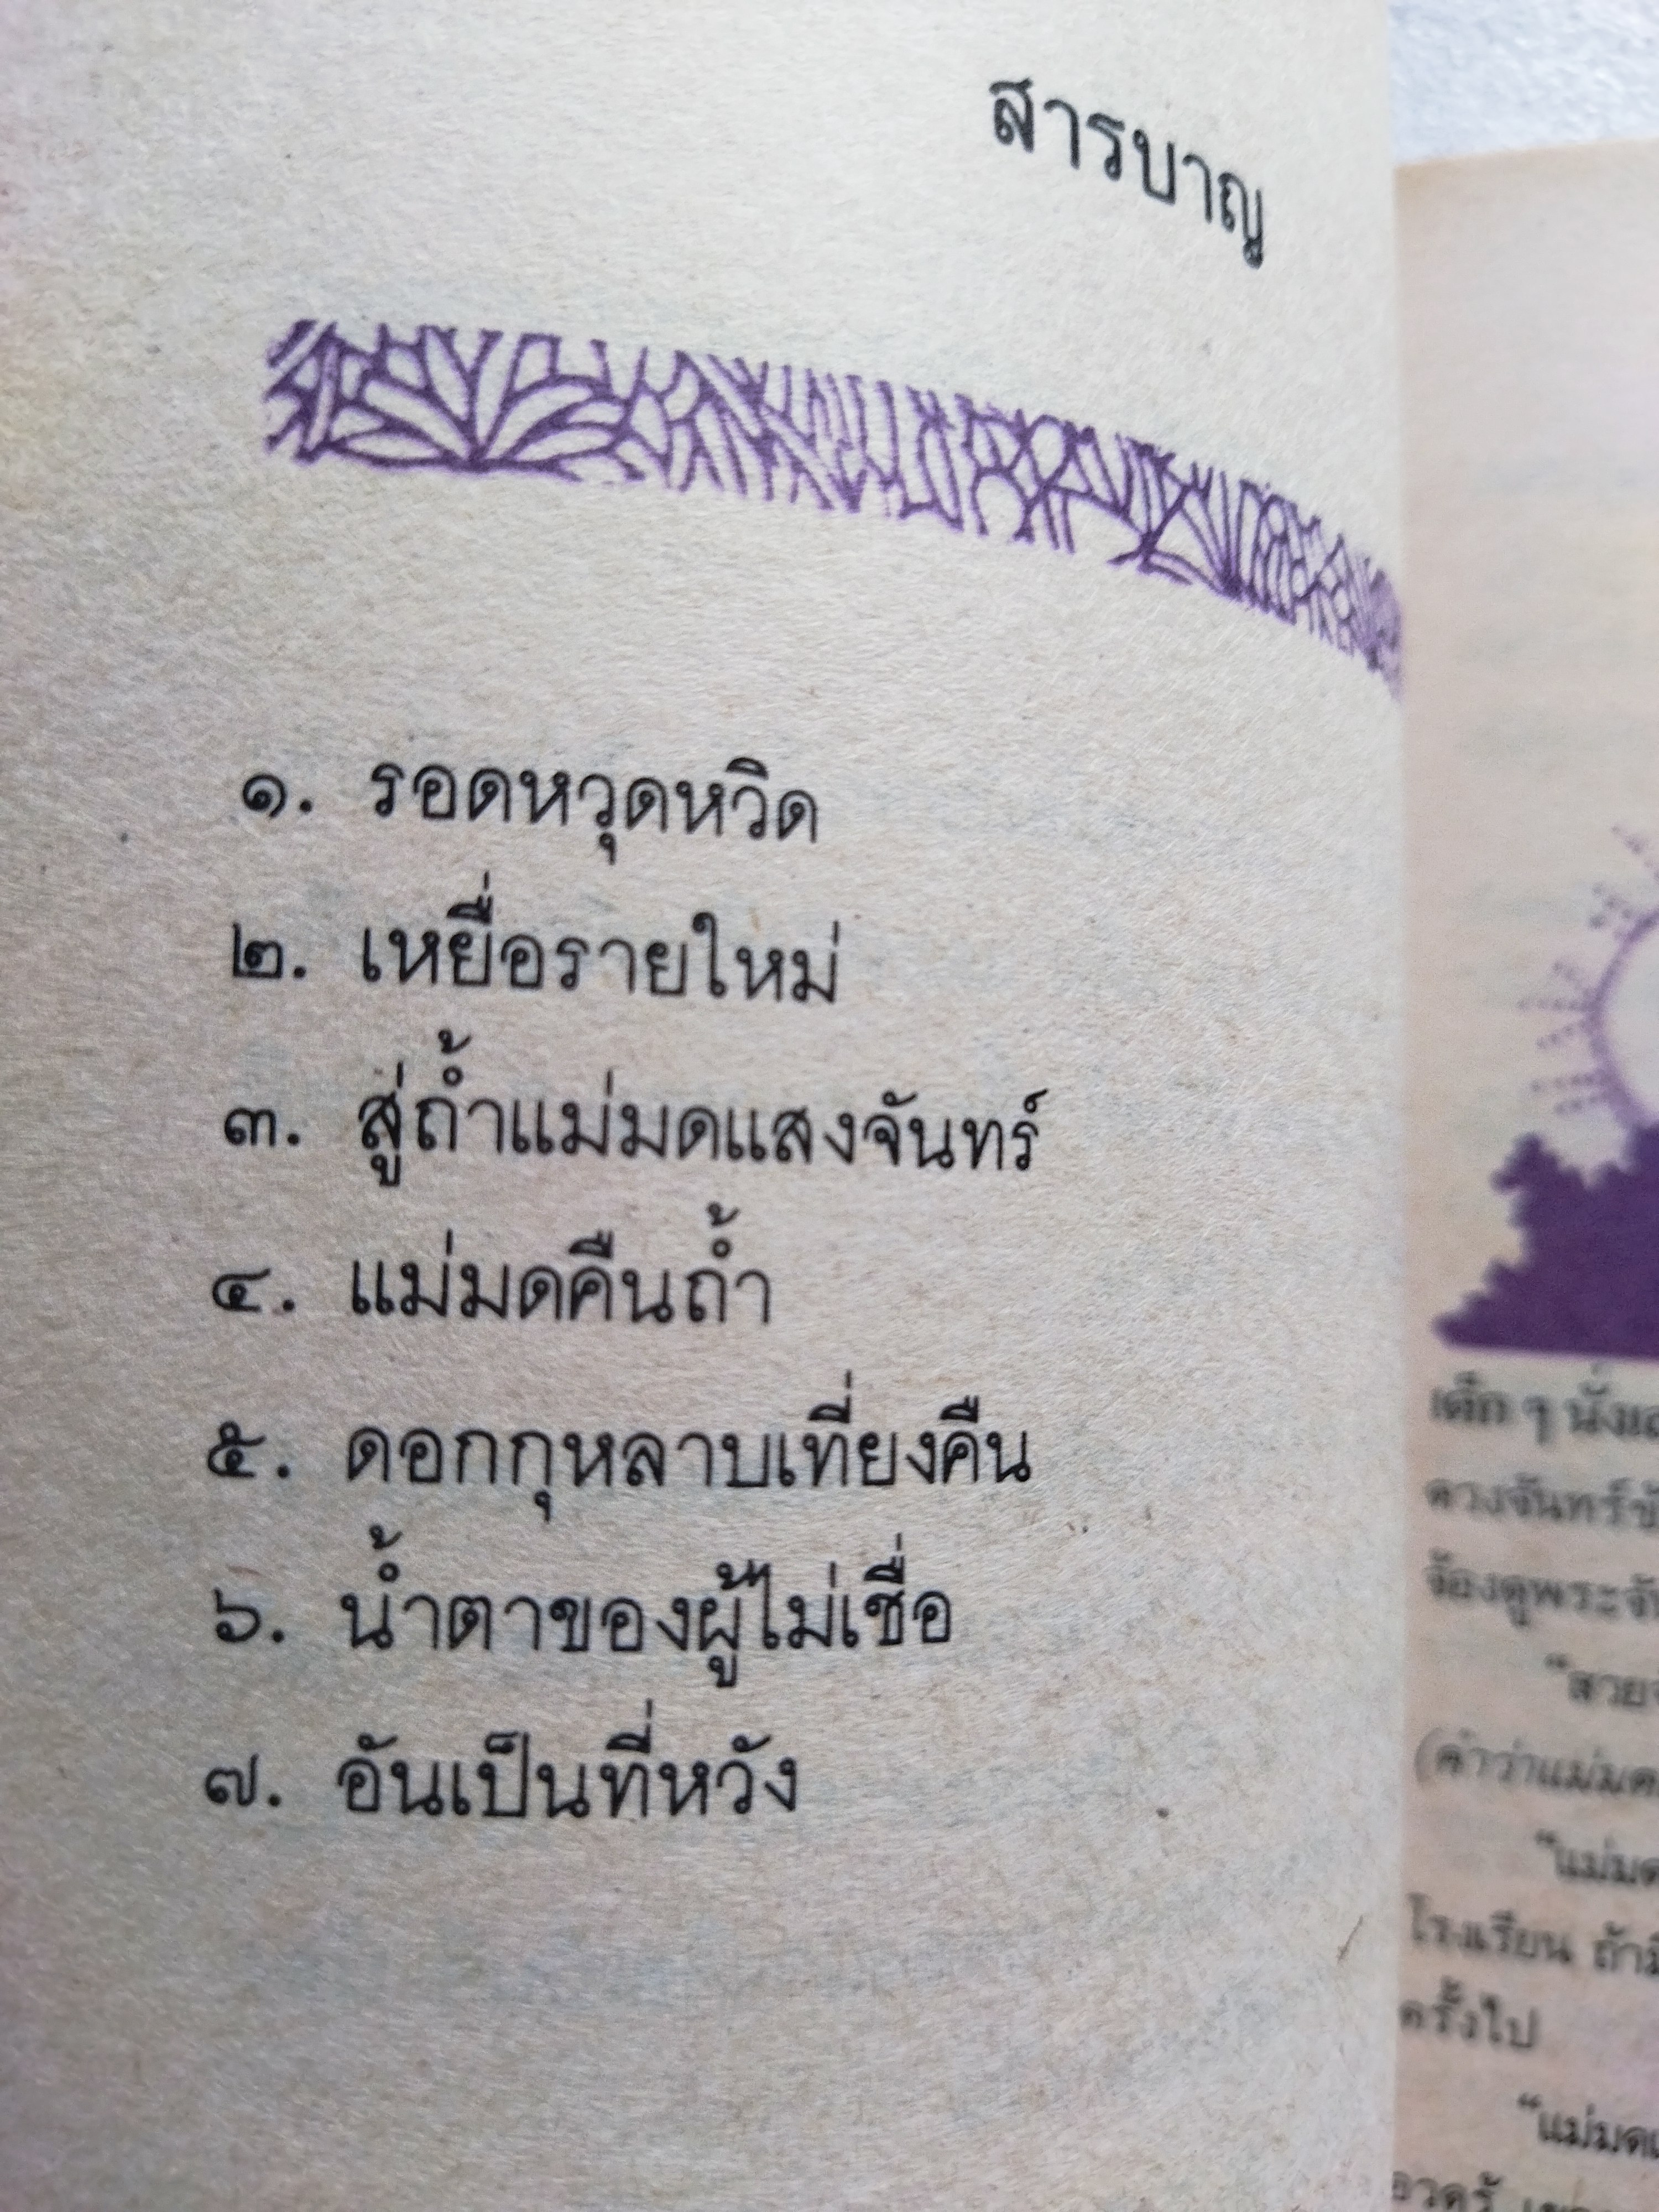 สารบาญ
๑. รอดหวุดหวิด
๒. เหยื่อรายใหม่
๓. สู่ถ้ำแม่มดแสงจันทร์
๔. แม่มดคืนถ้ำ
๕. ดอกกุหลาบเที่ยงคืน
๖. น้ำตาของผู้ไม่เชื่อ
๗. อันเป็นที่หวัง
เด็ก ๆ นั่ง
ดวงจันทร์
จ้องดูพระ
(คำว่าแม่มด
"แม่มด
โรงเรียน ถ้า
ครั้งไป
"แม่มด